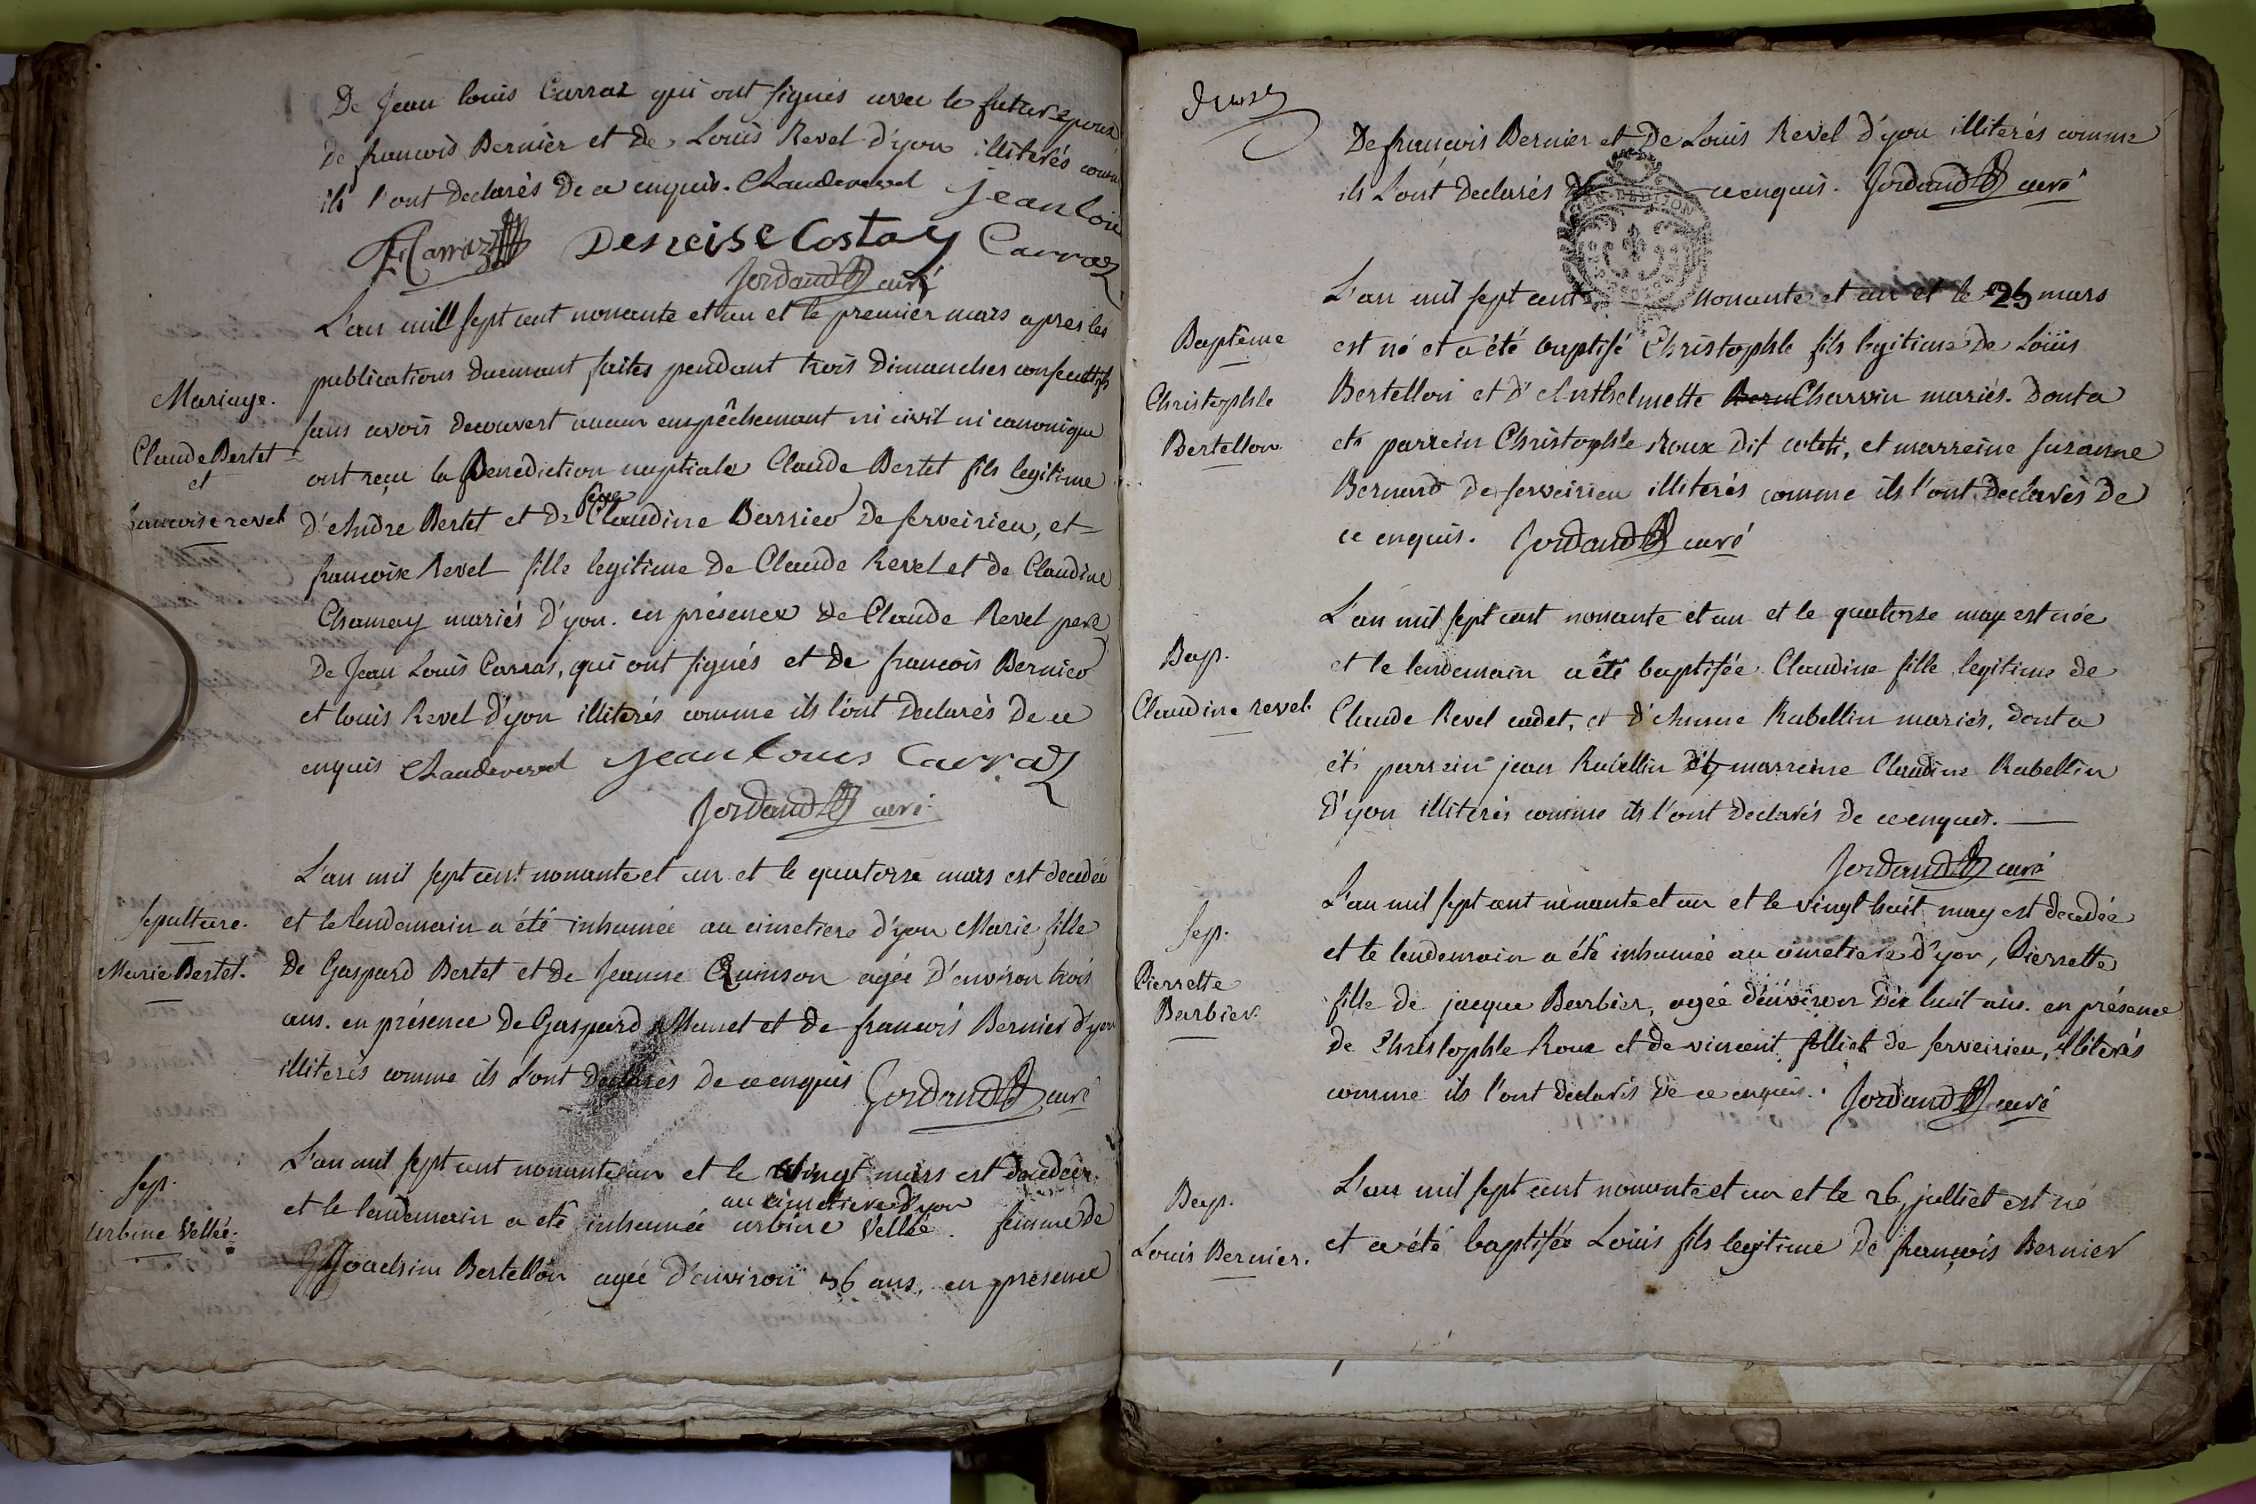 De Jean louis Carraz qui ont signés avec le futur epoux
de francois Bernier et de Louis Revel d'yon illiterés comme
ils l'ont declarés de ce enquis. Claude revel jean loui
Carraz Deneise Costaz Carraz
Jordand curé
L'an mill sept cent nonante et un et le premier mars apres les
publications duemant faites pendant trois Dimanches consecutifs
Mariage.
sans avoir decouvert aucun empêchemant ni civil ni canonique
Claude Bertet
et
ont reçu la Benediction nuptiale Claude Bertet fils legitime
francoise revel
d'Andre Bertet et de feue Claudine Barrico de serveirieu, et
francoise Revel fille legitime de Claude Revel et de Claudine
Chamay mariés d'yon. en présence de Claude Revel pere
De Jean Louis Carras, qui ont signés et de francois Bernier
et louis Revel d'yon illiterés comme ils l'ont declarés de ce
enquis Claude revel jean louis Carraz
Jordand curé
L'an mil sept cent nonante et un et le quatorse mars est decedée
sepulture.
et le lendemain a été inhumée au cimetiere d'yon Marie fille
Marie Bertet.
de Gaspard Bertet et de Jeanne Quinson agée d'environ trois
ans. en présence de Gaspard Mamet et de francois Bernier d'yon
illiterés comme ils l'ont declarés de ce enquis Jordand curé
L'an mil sept cent nonante un et le vingt mars est decedée
sep.
au cimetiere d'yon
et le lendemain a été inhumée urbine Vellée. femme de
urbine Vellée.
Joachim Bertellon agée d'environ 36 ans, en présence
De francois Bernier et De Louis Revel d'yon illiterés comme
ils l'ont declarés de ce enquis. Jordand curé
L'an mil sept cent nonante et un et le 25 mars
Baptême
est né et a été baptisé Christophle fils legitime de Louis
Christophle
Bertellon et d'Anthelmette Charvin mariés. Dont a
Bertellon
eté parrein Christophle Roux dit coleti, et marreine susanne
Bernard de serveirieu illiterés comme ils l'ont declarés de
ce enquis. Jordand curé
L'an mil sept cent nonante et un et le quatorse may est née
Bap.
et le lendemain a été baptisée Claudine fille legitime de
Claudine revel.
Claude Revel cadet, et d'Anne Rabellin mariés, dont a
été parrein jean Rabellin et marreine Claudine Rabellin
d'yon illiterés comme ils l'ont declarés de ce enquis.
Jordand curé
L'an mil sept cent nonante et un et le vingt huit may est decedée
sep.
et le lendemain a été inhumée au cimetiere d'yon, Pierrette
Pierrette
fille de jacque Barbier, agée d'environ dix huit ans. en présence
Barbier.
de Christophle Roux et de vincent folliet de serveirieu, illiterés
comme ils l'ont declarés de ce enquis. Jordand curé
L'an mil sept cent nonante et un et le 26 julliet est né
Bap.
et a été baptisée Louis fils legitime de françois Bernier
Louis Bernier.